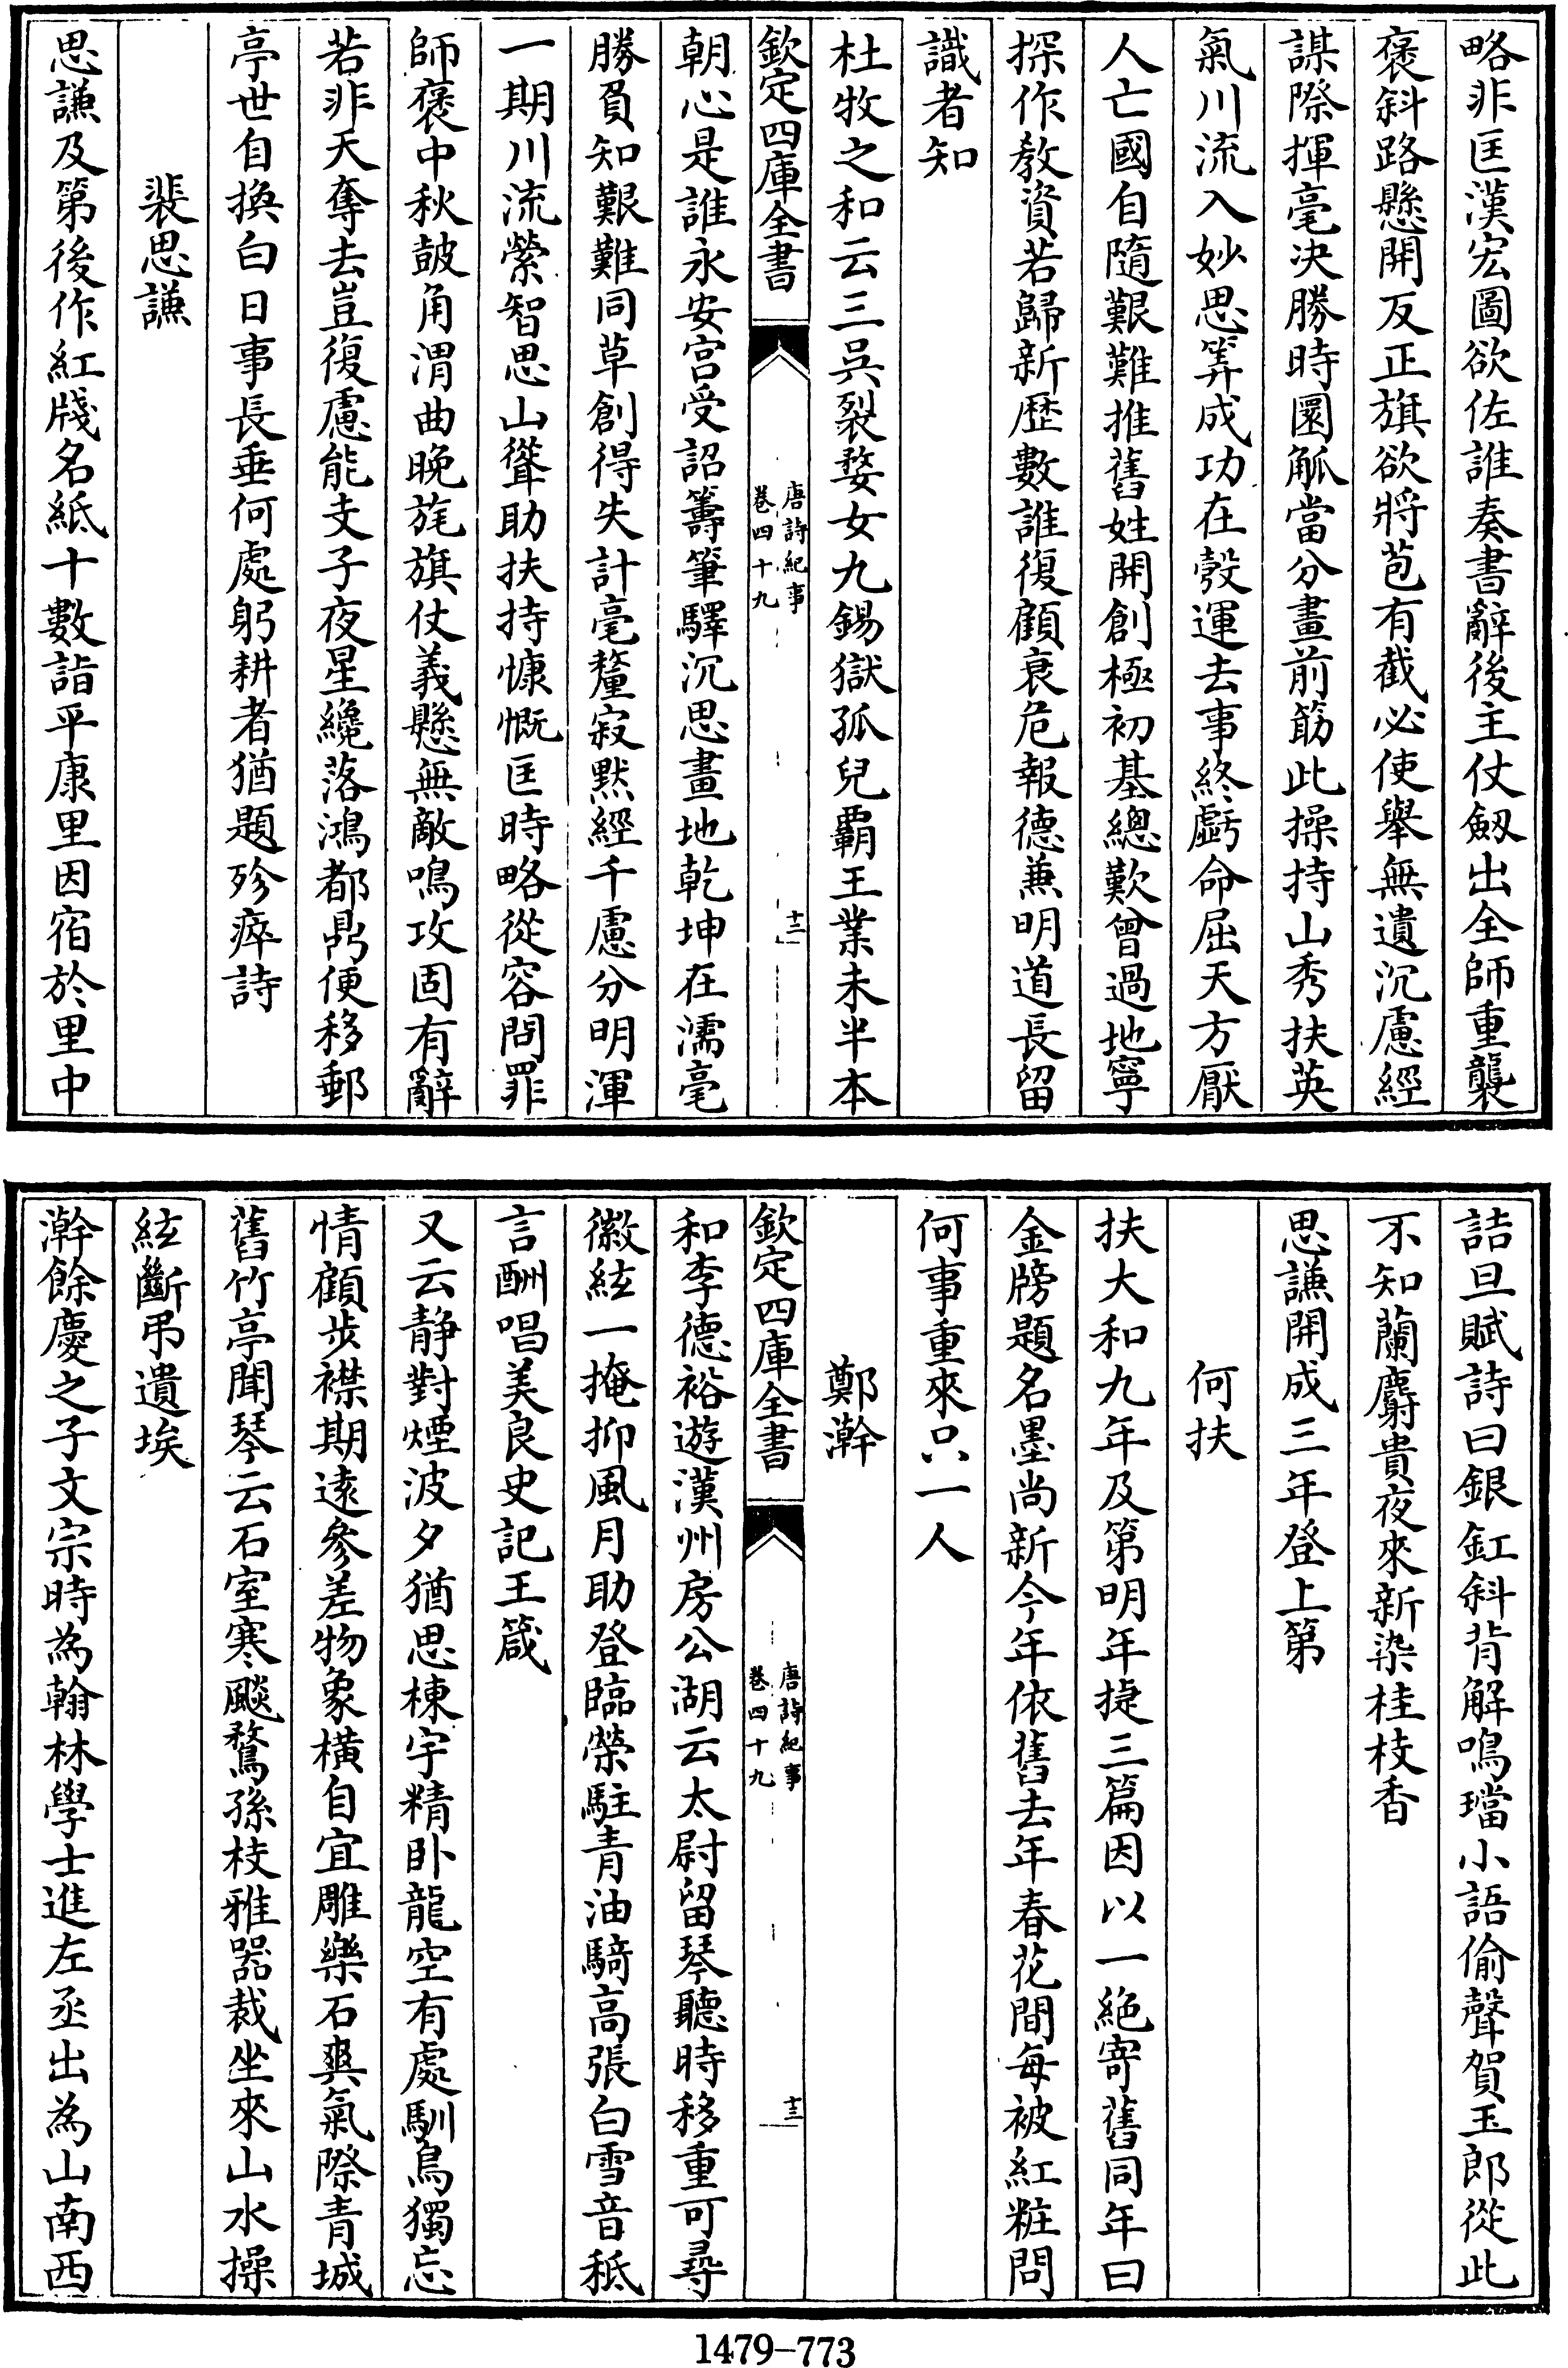 略非匡漢宏圖欲佐誰奏書辭後主仗劔出全師重襲
褒斜路懸開反正旗欲將苞有截必使舉無遺沉慮經
謀際揮毫決勝時圜觚當分畫前筯此操持山秀扶英
氣川流入妙思筭成功在彀運去事終虧命屈天方厭
人亡國自隨艱難推舊姓開創極初基總歎曾過地寧
探作教資若歸新歷數誰復顧衰危報德兼明道長留
識者知
杜牧之和云三呉裂婺女九錫獄孤兒霸王業未半本
欽定四庫全書
唐詩紀事
卷四十九
十二
朝心是誰永安宫受詔籌筆驛沉思畫地乾坤在濡毫
勝負知艱難同草創得失計毫釐寂黙經千慮分明渾
一期川流縈智思山聳助扶持慷慨匡時略從容問罪
師褒中秋鼓角渭曲晩旄旗仗義懸無敵鳴攻固有辭
若非天奪去豈復慮能支子夜星纔落鴻都鼎便移郵
亭世自換白日事長垂何處躬耕者猶題殄瘁詩
裴思謙
思謙及第後作紅牋名紙十數詣平康里因宿於里中
詰旦賦詩曰銀釭斜背解鳴璫小語偷聲賀玉郎從此
不知蘭麝貴夜來新染桂枝香
思謙開成三年登上第
何扶
扶大和九年及第明年捷三篇因以一絶寄舊同年曰
金牓題名墨尚新今年依舊去年春花間每被紅粧問
何事重來只一人
鄭澣
欽定四庫全書
唐詩紀事
卷四十九
十三
和李德裕遊漢州房公湖云太尉留琴聽時移重可尋
徽絃一掩抑風月助登臨榮駐青油騎高張白雪音秪
言酬唱美良史記王箴
又云静對煙波夕猶思棟宇精卧龍空有處馴鳥獨忘
情顧步襟期遠參差物象橫自宜雕樂石爽氣際青城
舊竹亭聞琴云石室寒飈鶩孫枝雅器裁坐來山水操
絃斷弔遺埃
澣餘慶之子文宗時為翰林學士進左丞出為山南西
1479-773